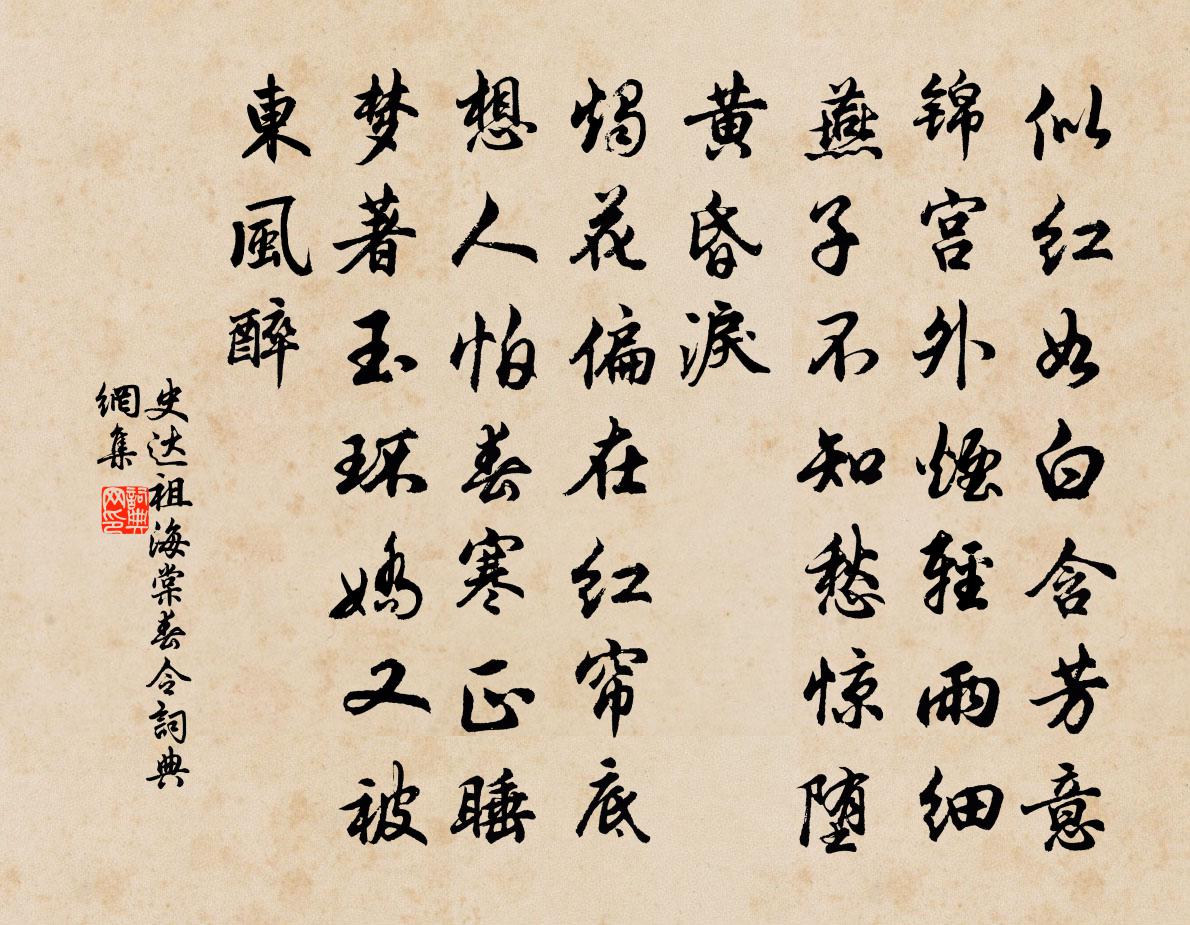 似红如白含芳意
锦宫外煙輕雨细
燕子不知愁惊堕
黄昏淚
烛花偏在红帘底
想人怕春寒正睡
梦著玉环娇又被
東風醉
史达祖海棠春令詞典
網集
詞典
网印